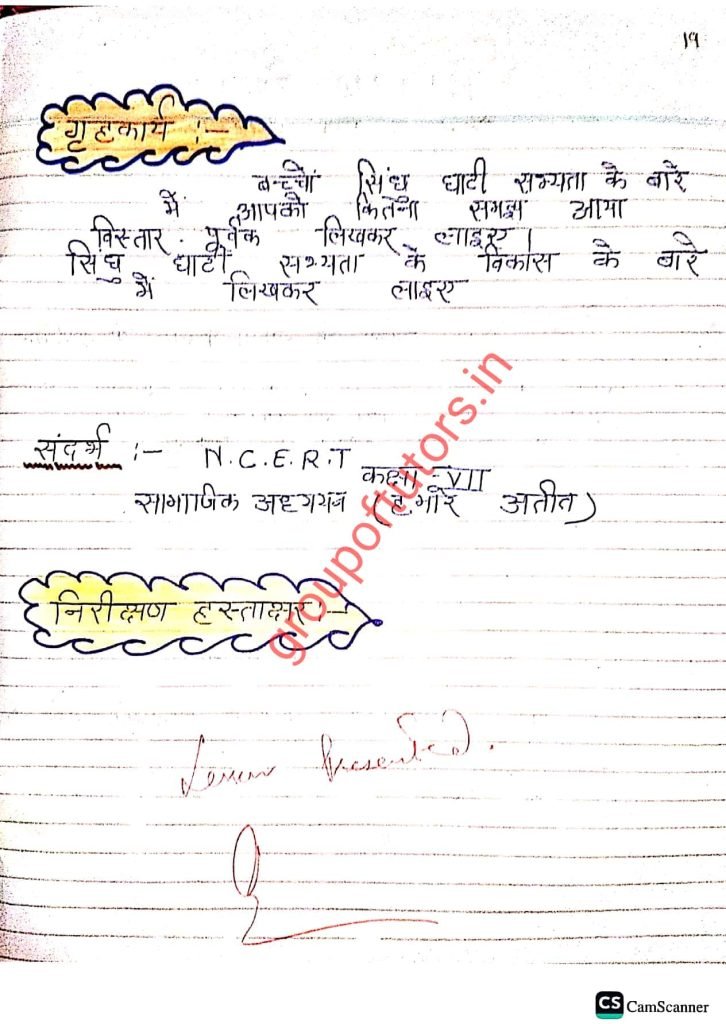 19
गृहकार्य :-
बच्चों सिंधु घाटी सभ्यता के बारे
में आपको कितना समझ आया
विस्तार पूर्वक लिखकर लाइए।
सिंधु घाटी सभ्यता के विकास के बारे
में लिखकर लाइए
संदर्भ :- N.C.E.R.T
कक्षा - VII
सामाजिक अध्ययन (हमारे अतीत)
groupoftutors.in
निरीक्षण हस्ताक्षर :-
Presented.
CS CamScanner